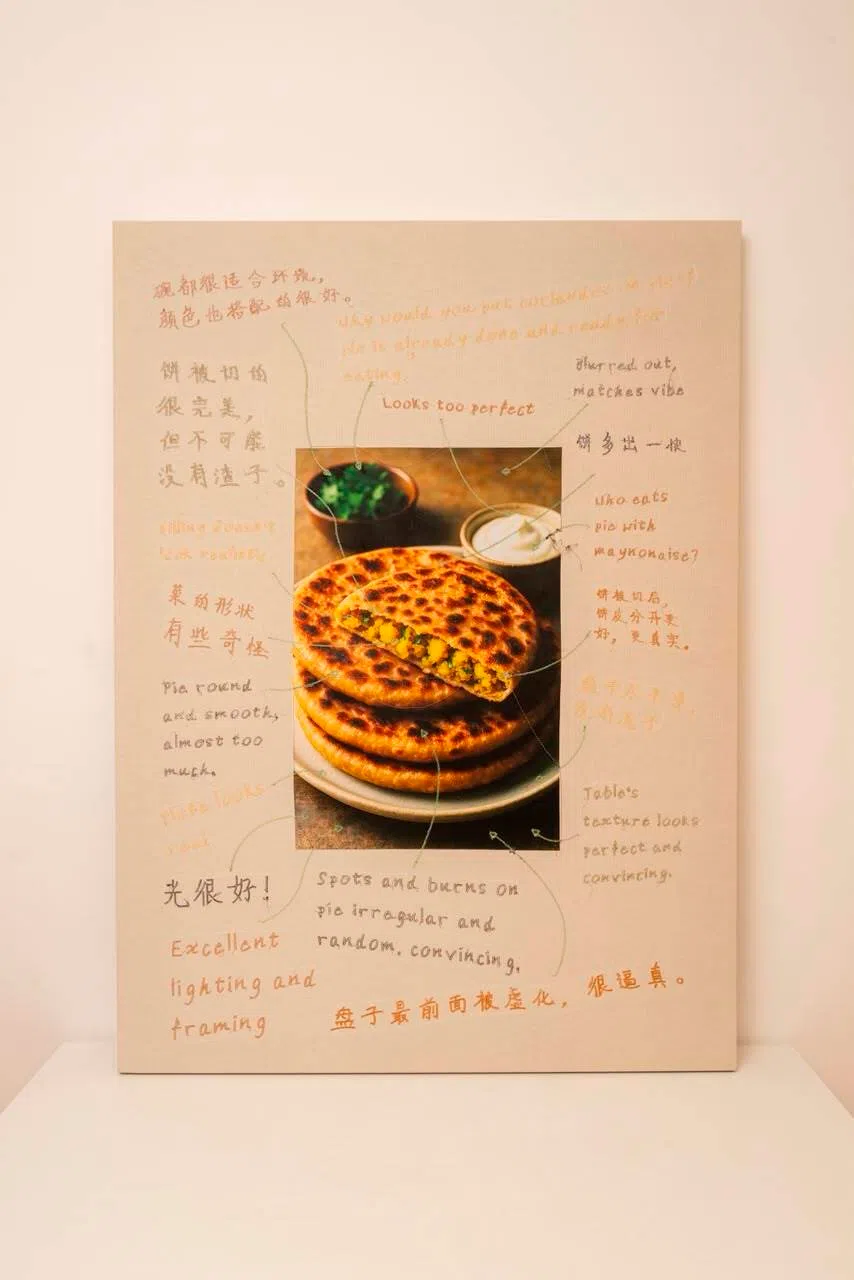 碗都很适合环境,
颜色也搭配的很好。
Why would you put coriander in next
pie is already done and ready for
eating.
Looks too perfect
Blurred out,
matches vibe
饼被切的
很完美,
但不可能
没有渣子。
饼多出一块
Who eats
pie with
maynonaise?
look realistic
菜的形状
有些奇怪
饼被切后,
饼皮分开更
好,更真实。
Pie round
and smooth,
almost too
much.
盘子太干净,
没有渣子
Plate looks
real
Table's
texture looks
perfect and
convincing.
光很好!
Spots and burns on
pie irregular and
random, convincing.
Excellent
lighting and
framing
盘子最前面被虚化,很逼真。